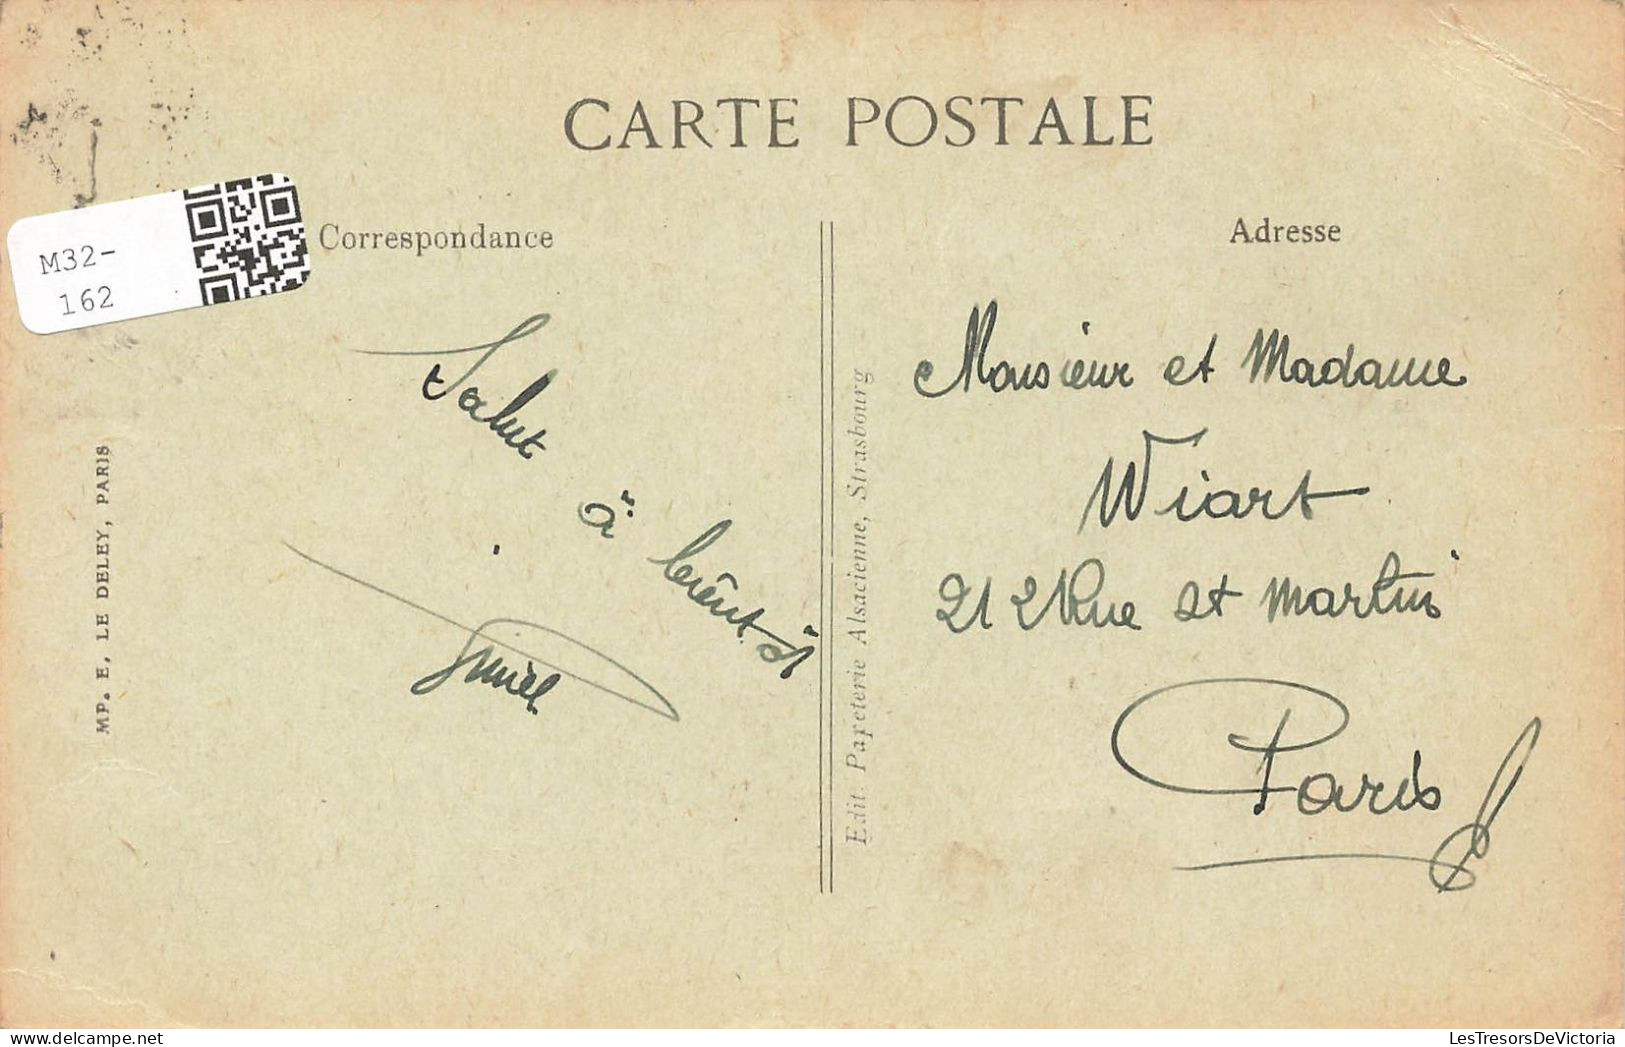 CARTE POSTALE
Correspondance
Adresse
M32-
162
Salut
à bientôt
Monsieur et Madame
Wiart
212 Rue St Martin
Paris
MP. E. LE DELEY, PARIS
Edit. Papeterie Alsacienne, Strasbourg
LesTresorsDeVictoria